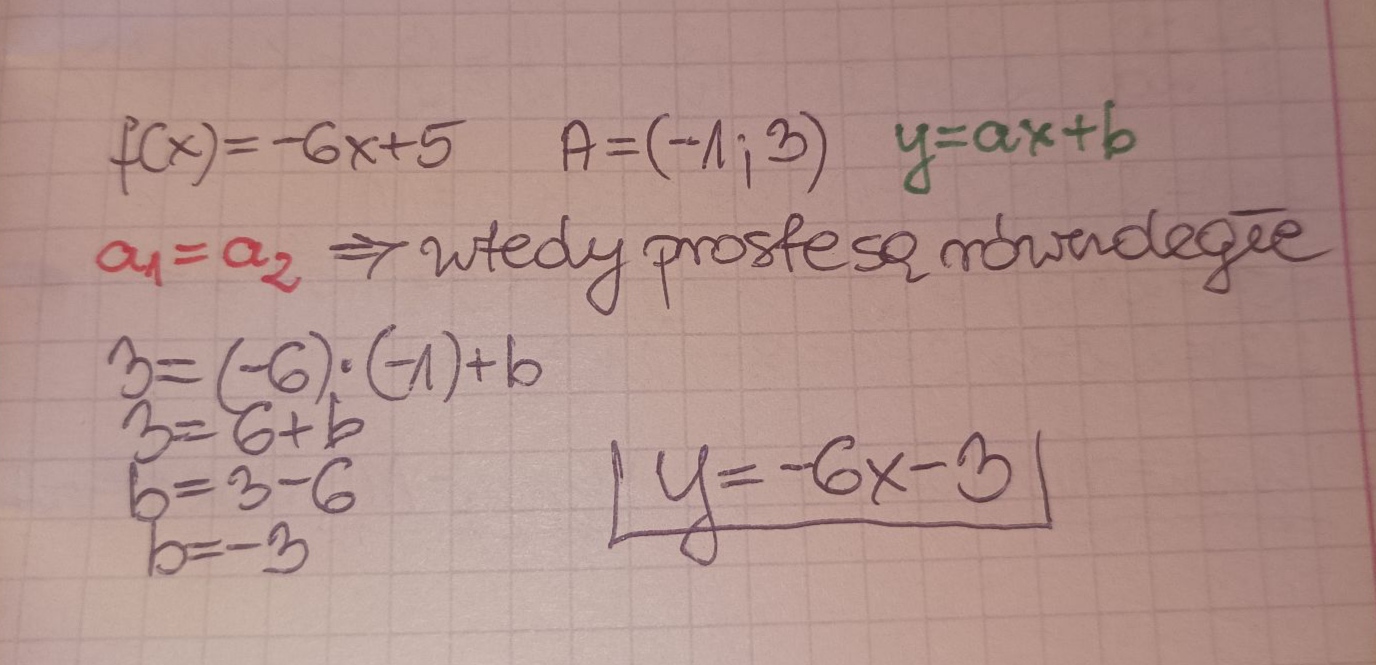 f(x)=-6x+5 A=(-1;3) y=ax+b
a₁=a₂ ⇒ wtedy proste są równoległe
3=(-6)·(-1)+b
3=6+b
b=3-6
b=-3
y=-6x-3